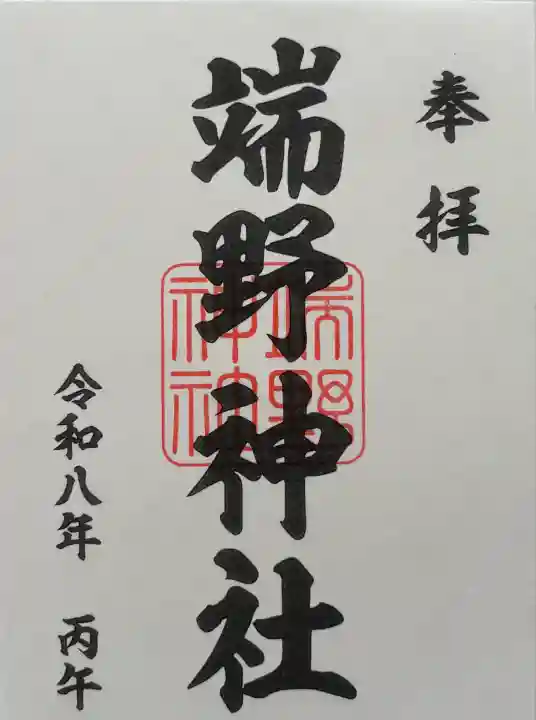 奉拝
端野神社
端野
神社
令和八年 丙午